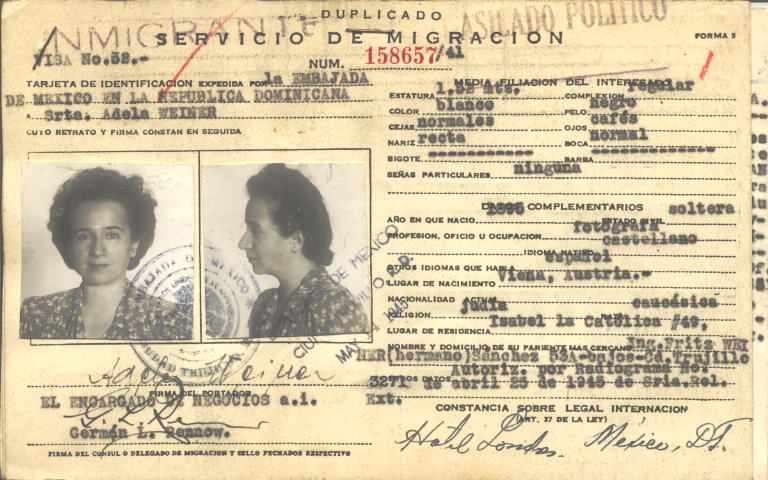 DUPLICADO
INMIGRANTE
ASILADO POLITICO
SERVICIO DE MIGRACION
FORMA 5
VISA No.52.-
NUM. 158657/41
TARJETA DE IDENTIFICACION EXPEDIDA POR la EMBAJADA
DE MEXICO EN LA REPUBLICA DOMINICANA
A Srta. Adela WEINER
CUYO RETRATO Y FIRMA CONSTAN EN SEGUIDA
MEDIA FILIACION DEL INTERESADO
ESTATURA 1,52 mts. COMPLEXION regular
COLOR blanco PELO negro
CEJAS normales OJOS cafés
NARIZ recta BOCA normal
BIGOTE ----------- BARBA -------------
SEÑAS PARTICULARES ninguna
DATOS COMPLEMENTARIOS
AÑO EN QUE NACIO ESTADO CIVIL soltera
PROFESION, OFICIO U OCUPACION fotógrafa
IDIOMA NATIVO castellano
OTROS IDIOMAS QUE HABLA español
LUGAR DE NACIMIENTO Viena, Austria.-
NACIONALIDAD ACTUAL
RELIGION judía caucásica
LUGAR DE RESIDENCIA Isabel la Católica #49,
NOMBRE Y DOMICILIO DE SU PARIENTE MAS CERCANO Ing.Fritz WEI
NER(hermano)Sánchez 53A-bajos-Cd.Trujillo
OTROS DATOS Autoriz. por Radiograma No.
3271 de abril 25 de 1943 de Sria.Rel.
Ext.
CONSTANCIA SOBRE LEGAL INTERNACION
(ART. 37 DE LA LEY)
Hotel Londres. México, D.F.
EMBAJADA DE MEXICO
CIUDAD TRUJILLO
CIUDAD DE MEXICO
MAY 1943
Adela Weiner
FIRMA DEL PORTADOR
EL ENCARGADO DE NEGOCIOS a.i.
Germán L. Rennow.
FIRMA DEL CONSUL O DELEGADO DE MIGRACION Y SELLO FECHADOR RESPECTIVO